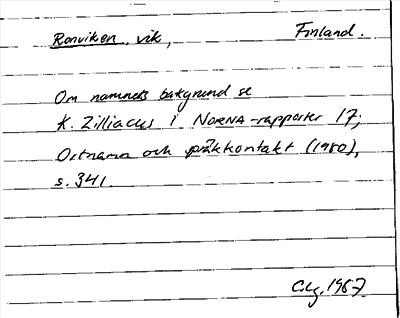 Ronviken, vik, Finland.
Om namnets bakgrund se
K. Zilliacus i NORNA-rapporter 17;
Ortnamn och språkkontakt (1980),
s. 341.
1987